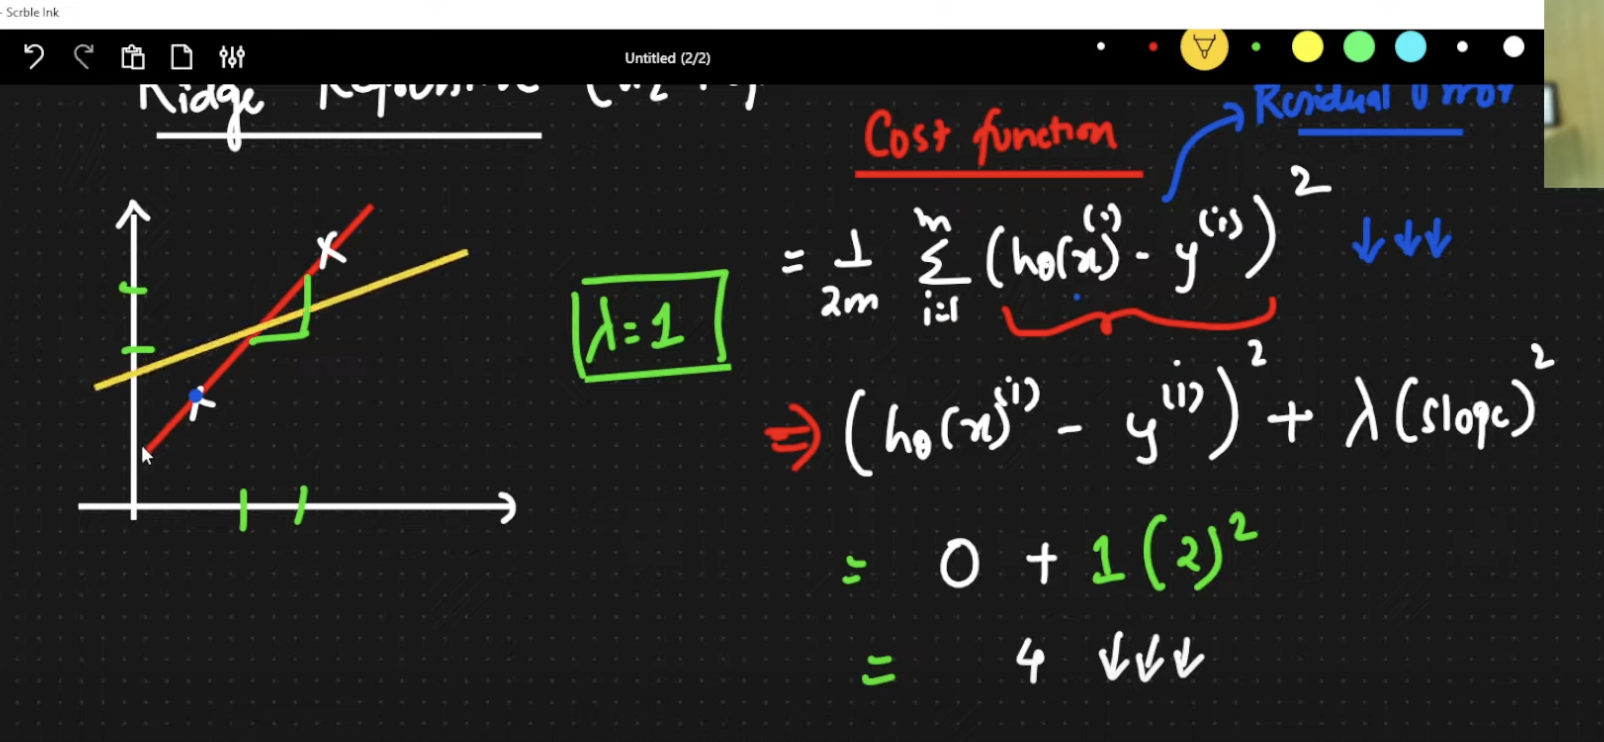 Scrble Ink
Untitled (2/2)
Ridge
Cost function
Residual Error
= 1/2m ∑ᵢ₌₁ᵐ (hθ(x)⁽ⁱ⁾ - y⁽ⁱ⁾)² ↓↓↓
λ = 1
⇒ (hθ(x)⁽ⁱ⁾ - y⁽ⁱ⁾)² + λ(slope)²
= 0 + 1(2)²
= 4 ↓↓↓